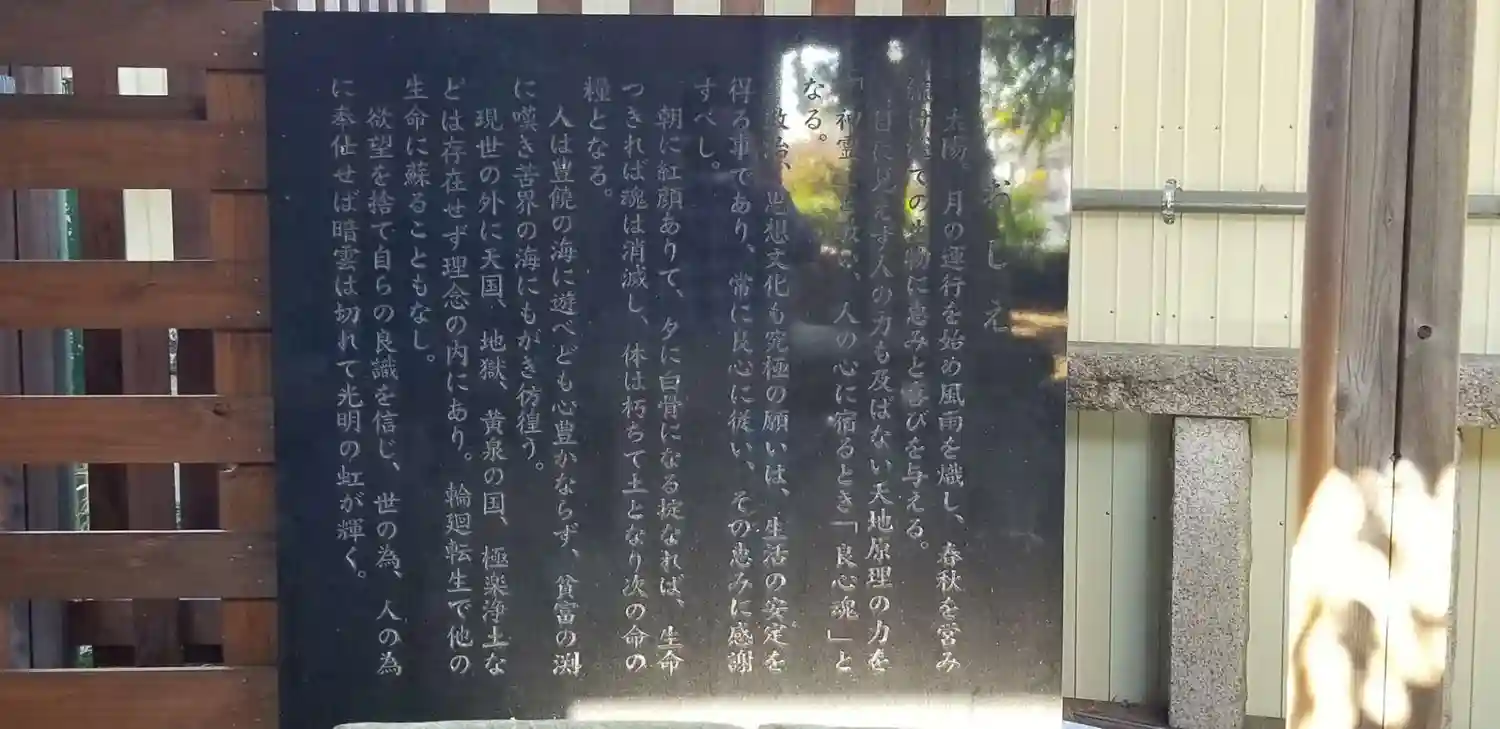 おしえ
太陽、月の運行を始め風雨を熾し、春秋を営み
ての生物に恵みと喜びを与える。
目に見えず人の力も及ばない天地原理の力を
「神霊」、人の心に宿るとき「良心魂」と
なる。
政治、思想文化も究極の願いは、生活の安定を
得る事であり、常に良心に従い、その恵みに感謝
すべし。
朝に紅顔ありて、夕に白骨になる掟なれば、生命
つきれば魂は消滅し、体は朽ちて土となり次の命の
糧となる。
人は豊饒の海に遊べども心豊かならず、貧富の渕
に嘆き苦界の海にもがき彷徨う。
現世の外に天国、地獄、黄泉の国、極楽浄土な
どは存在せず理念の内にあり。輪廻転生で他の
生命に蘇ることもなし。
欲望を捨て自らの良識を信じ、世の為、人の為
に奉仕せば暗雲は切れて光明の虹が輝く。